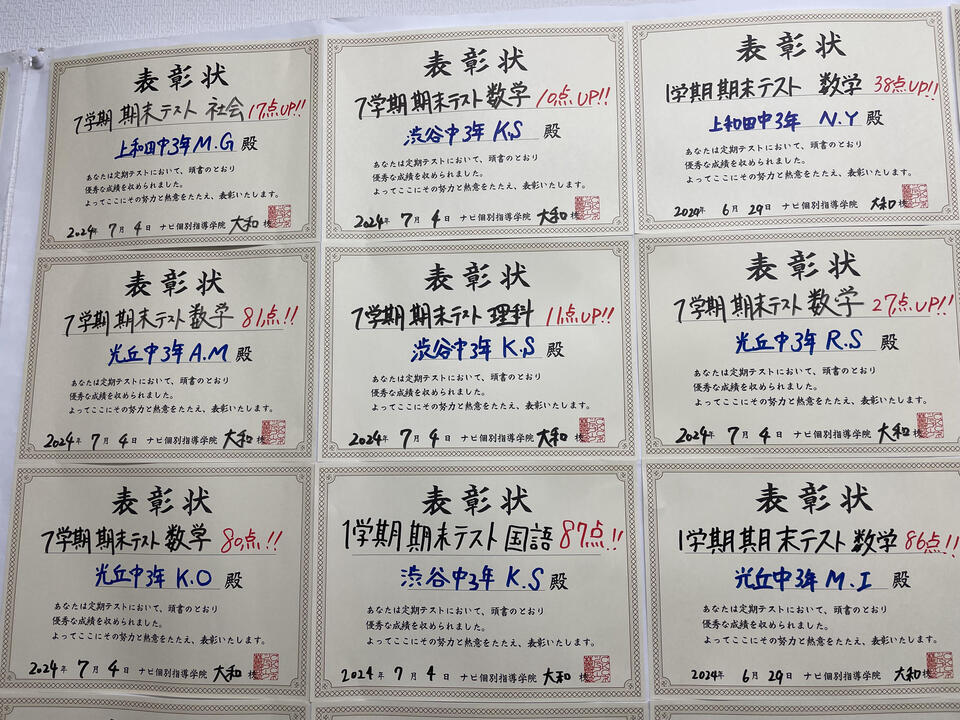 表彰状
1学期 期末テスト 社会 17点UP!!
上和田中3年 M.G 殿
あなたは定期テストにおいて、頭書のとおり
優秀な成績を収められました。
よってここにその努力と熱意をたたえ、表彰いたします。
2024年 7月 4日 ナビ個別指導学院 大和校
表彰状
1学期 期末テスト 数学 10点UP!!
渋谷中3年 K.S 殿
あなたは定期テストにおいて、頭書のとおり
優秀な成績を収められました。
よってここにその努力と熱意をたたえ、表彰いたします。
2024年 7月 4日 ナビ個別指導学院 大和校
表彰状
1学期 期末テスト 数学 38点UP!!
上和田中3年 N.Y 殿
あなたは定期テストにおいて、頭書のとおり
優秀な成績を収められました。
よってここにその努力と熱意をたたえ、表彰いたします。
2024年 6月 29日 ナビ個別指導学院 大和校
表彰状
1学期 期末テスト 数学 81点!!
光丘中3年 A.M 殿
あなたは定期テストにおいて、頭書のとおり
優秀な成績を収められました。
よってここにその努力と熱意をたたえ、表彰いたします。
2024年 7月 4日 ナビ個別指導学院 大和校
表彰状
1学期 期末テスト 理科 11点UP!!
渋谷中3年 K.S 殿
あなたは定期テストにおいて、頭書のとおり
優秀な成績を収められました。
よってここにその努力と熱意をたたえ、表彰いたします。
2024年 7月 4日 ナビ個別指導学院 大和校
表彰状
1学期 期末テスト 数学 27点UP!!
光丘中3年 R.S 殿
あなたは定期テストにおいて、頭書のとおり
優秀な成績を収められました。
よってここにその努力と熱意をたたえ、表彰いたします。
2024年 7月 4日 ナビ個別指導学院 大和校
表彰状
1学期 期末テスト 数学 80点!!
光丘中3年 K.O 殿
あなたは定期テストにおいて、頭書のとおり
優秀な成績を収められました。
よってここにその努力と熱意をたたえ、表彰いたします。
2024年 7月 4日 ナビ個別指導学院 大和校
表彰状
1学期 期末テスト 国語 87点!!
渋谷中3年 K.S 殿
あなたは定期テストにおいて、頭書のとおり
優秀な成績を収められました。
よってここにその努力と熱意をたたえ、表彰いたします。
2024年 7月 4日 ナビ個別指導学院 大和校
表彰状
1学期 期末テスト 数学 86点!!
光丘中3年 M.I 殿
あなたは定期テストにおいて、頭書のとおり
優秀な成績を収められました。
よってここにその努力と熱意をたたえ、表彰いたします。
2024年 6月 29日 ナビ個別指導学院 大和校